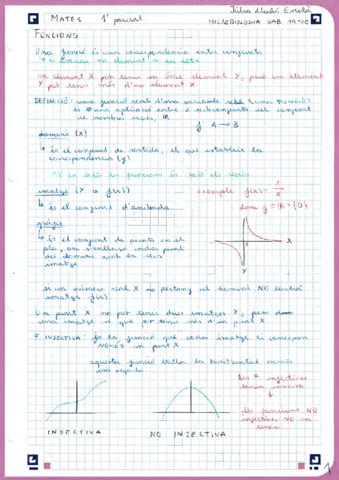 MATES 1r parcial
MICROBIOLOGIA UAB
FUNCIONS
Una funció és una correspondència entre conjunts
un element X pot tenir un únic element Y, però un element
Y pot tenir més d'un element X
DEFINICIÓ: una funció real d'una variable real
és una aplicació entre 2 subconjunts del conjunt
de nombres reals, ℝ
f: A → B
domini (X)
↳ és el conjunt de sortida, el que estableix la
correspondència (y)
imatge (Y o f(x))
exemple f(x) = 1/X
↳ és el conjunt d'arribada
dom f = ℝ - {0}
gràfic
↳ és el conjunt de punts en el
pla, on s'enllaça cada punt
del domini amb la seva
imatge
X
Y
si un número real X no pertany al domini NO tindrà
imatge f(x)
Un punt X no pot tenir dues imatges Y, però
una imatge sí que pot tenir més d'un punt X
F. INJECTIVA: és la funció que cada imatge li correspon
NOMÉS un punt X
aquesta funció talla la horitzontal només
una vegada
les F injectives
tenen inversa
↓
les funcions NO
injectives NO en
tenen
INJECTIVA
NO INJECTIVA
1